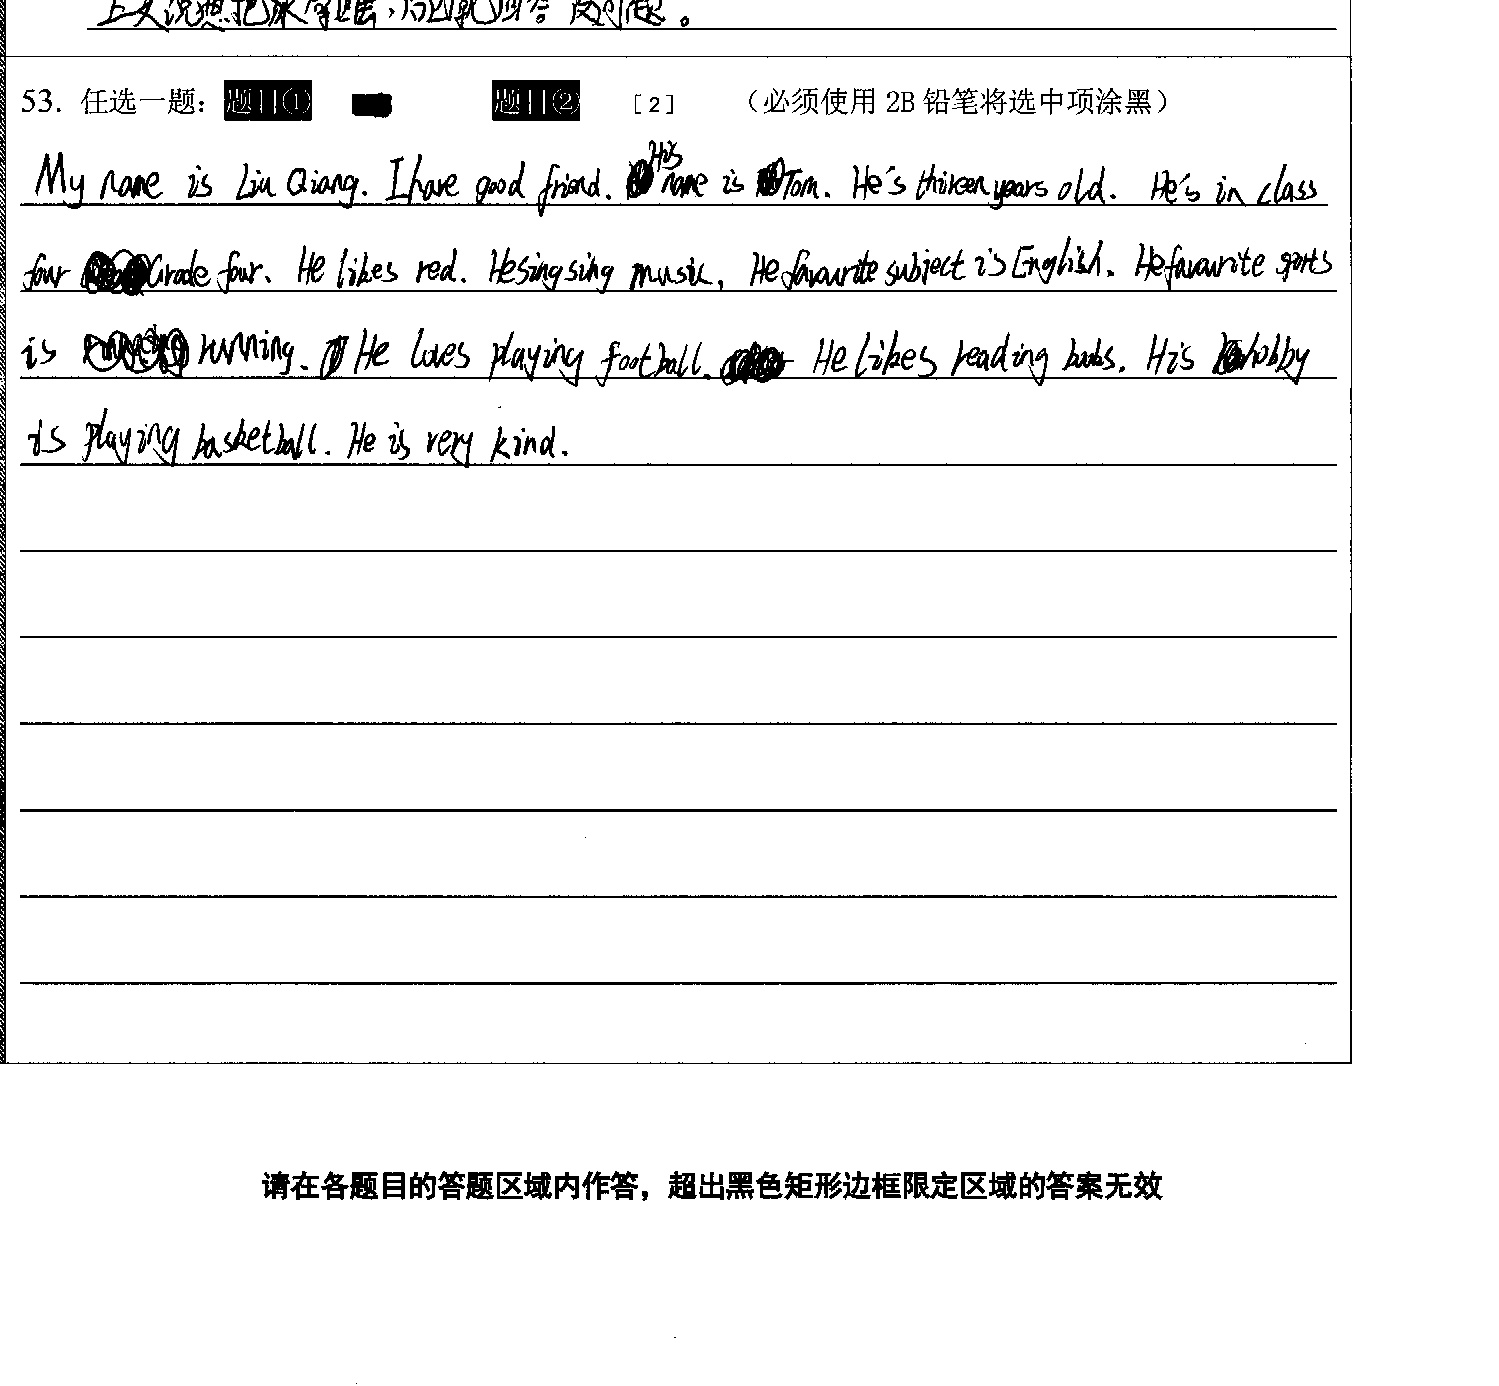 53. 任选一题： 题目① 题目② [2] （必须使用 2B 铅笔将选中项涂黑）
My name is Liu Qiang. I have good friend. His name is Tom. He's thirteen years old. He's in class
four Grade four. He likes red. He sing sing music. He favourite subject is English. He favourite sports
is running. He loves playing football. He likes reading books. His hobby
is playing basketball. He is very kind.
请在各题目的答题区域内作答，超出黑色矩形边框限定区域的答案无效